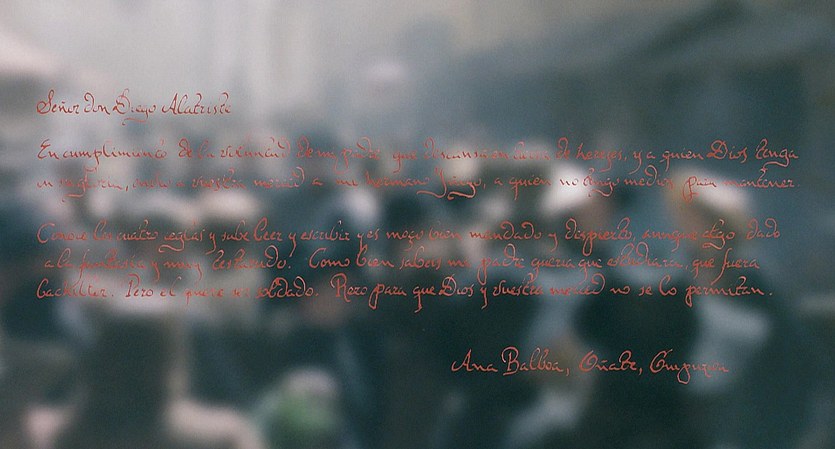 Señor don Diego Alatriste
En cumplimiento de la voluntad de mi padre que descansa en tierra de herejes, y a quien Dios tenga
en su gloria, a vuestra merced a mi hermano Íñigo, a quien no tengo medios para mantener.
Conoce las cuatro reglas y sabe leer y escribir y es mozo bien mandado y dispierto, aunque algo dado
a la fantasía y muy testarudo. Como bien sabeis mi padre queria que estudiara, que fuera
bachiller. Pero él quiere ser soldado. Rezo para que Dios y vuestra merced no se lo permitan.
Ana Balboa, Oñate, Guipuzcoa